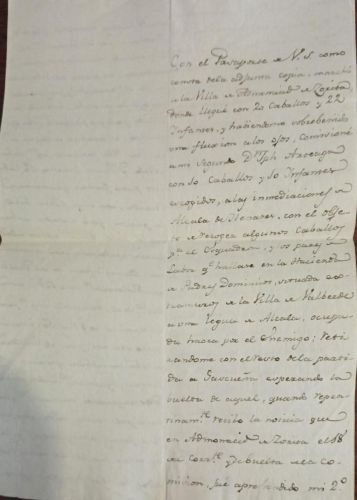 Con el Pasaporte de V.S. como
consta dela adjunta copia, marché
a la Villa de Almonacid de Zorita,
donde llegué con 20 Caballos y 22
Infantes, y haviendome sobrebenido
una fluxion a los ojos, comisioné
a mi segundo Dn Jph Arteaga
con 50 Caballos y 50 Infantes
escogidos, a las inmediaciones de
Alcala de Henares, con el obje
to de recoger algunos Caballos
pa el Esquadron, y 90 pares de
que hallase en la Hacienda
de Padres Dominicos, situada
de la Villa de
a una legua de Alcala, ocupa
da haora por el Enemigo; reti
randome con el resto de la parti
da a Sascueña esperando la
buelta de aquel, quando repen
tinamte recibo la noticia que
en Admonacid de Zorita el 18
de Corrte y de buelta de la co
mision, fue aprehendido mi 2º